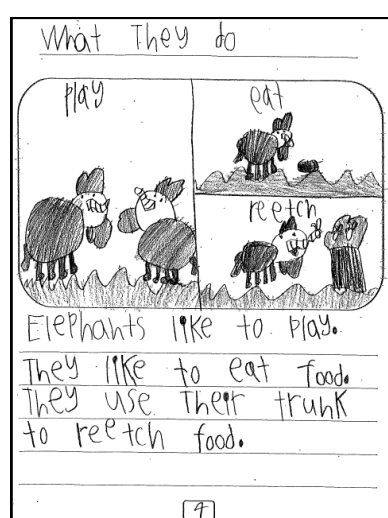 What They do
play
eat
reetch
Elephants like to play.
They like to eat food.
They use Their trunk
to reetch food.
4